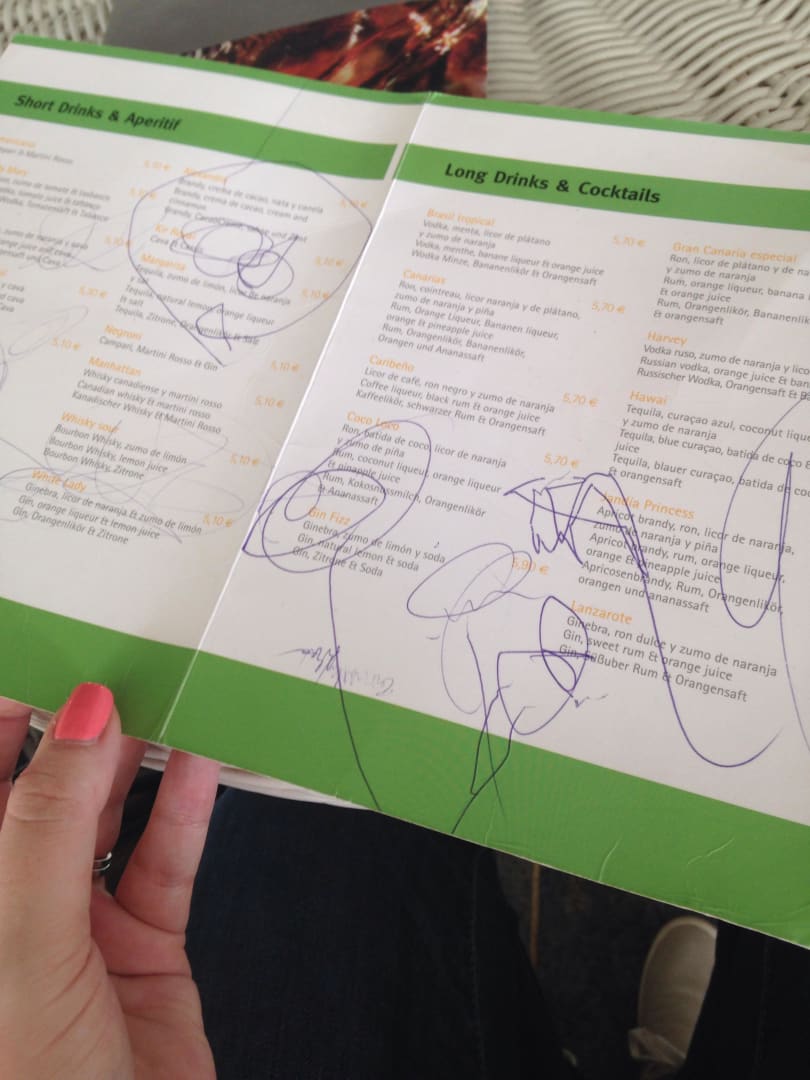 Short Drinks & Aperitif
Martini Rosso
5,10 €
zumo de tomate & tabasco
tomato juice & tabasco
Wodka, Tomatensaft & Tabasco
5,10
zumo de naranja y cava
orange juice and cava
5,10
y cava
5,10 €
cava
Cava
5,10 €
Brandy, crema de cacao, nata y canela
Brandy, crema de cacao, cream and
cinnamon
5,10 €
Kir Royal
Cava & Cassis
5,10 €
Margarita
Tequila, zumo de limón, licor de naranja
y sal
5,10 €
Tequila, natural lemon, orange liqueur
& salt
Tequila, Zitrone, Orangenlikör & Salz
Negroni
Campari, Martini Rosso & Gin
5,10 €
Manhattan
Whisky canadiense y martini rosso
Canadian whisky & martini rosso
Kanadischer Whisky & Martini Rosso
5,10 €
Whisky sour
Bourbon Whisky, zumo de limón
Bourbon Whisky, lemon juice
Bourbon Whisky, Zitrone
5,10 €
White Lady
Ginebra, licor de naranja & zumo de limón
Gin, orange liqueur & lemon juice
Gin, Orangenlikör & Zitrone
5,10 €
Long Drinks & Cocktails
Brasil tropical
Vodka, menta, licor de plátano
y zumo de naranja
Vodka, menthe, banane liqueur & orange juice
Wodka Minze, Bananenlikör & Orangensaft
5,70 €
Canarias
Ron, cointreau, licor naranja y de plátano,
zumo de naranja y piña
Rum, Orange Liqueur, Bananen liqueur,
orange & pineapple juice
Rum, Orangenlikör, Bananenlikör,
Orangen und Ananassaft
5,70 €
Caribeño
Licor de café, ron negro y zumo de naranja
Coffee liqueur, black rum & orange juice
Kaffeelikör, schwarzer Rum & Orangensaft
5,70 €
Coco Loco
Ron, batida de coco, licor de naranja
y zumo de piña
Rum, coconut liqueur, orange liqueur
& pineapple juice
Rum, Kokosnussmilch, Orangenlikör
& Ananassaft
5,70 €
Gin Fizz
Ginebra, zumo de limón y soda
Gin, natural lemon & soda
Gin, Zitrone & Soda
5,90 €
Gran Canaria especial
Ron, licor de plátano y de
y zumo de naranja
Rum, orange liqueur, banana
& orange juice
Rum, Orangenlikör, Bananenlik
& orangensaft
Harvey
Vodka ruso, zumo de naranja y lico
Russian vodka, orange juice & ban
Russischer Wodka, Orangensaft & Ba
Hawai
Tequila, curaçao azul, coconut lique
y zumo de naranja
Tequila, blue curaçao, batida de coco &
juice
Tequila, blauer curaçao, batida de coc
& orangensaft
Jandia Princess
Apricot brandy, ron, licor de naranja,
zumo de naranja y piña
Apricot brandy, rum, orange liqueur,
orange & pineapple juice
Apricosenbrandy, Rum, Orangenlikör,
orangen und ananassaft
Lanzarote
Ginebra, ron dulce y zumo de naranja
Gin, sweet rum & orange juice
Gin, Süßuber Rum & Orangensaft